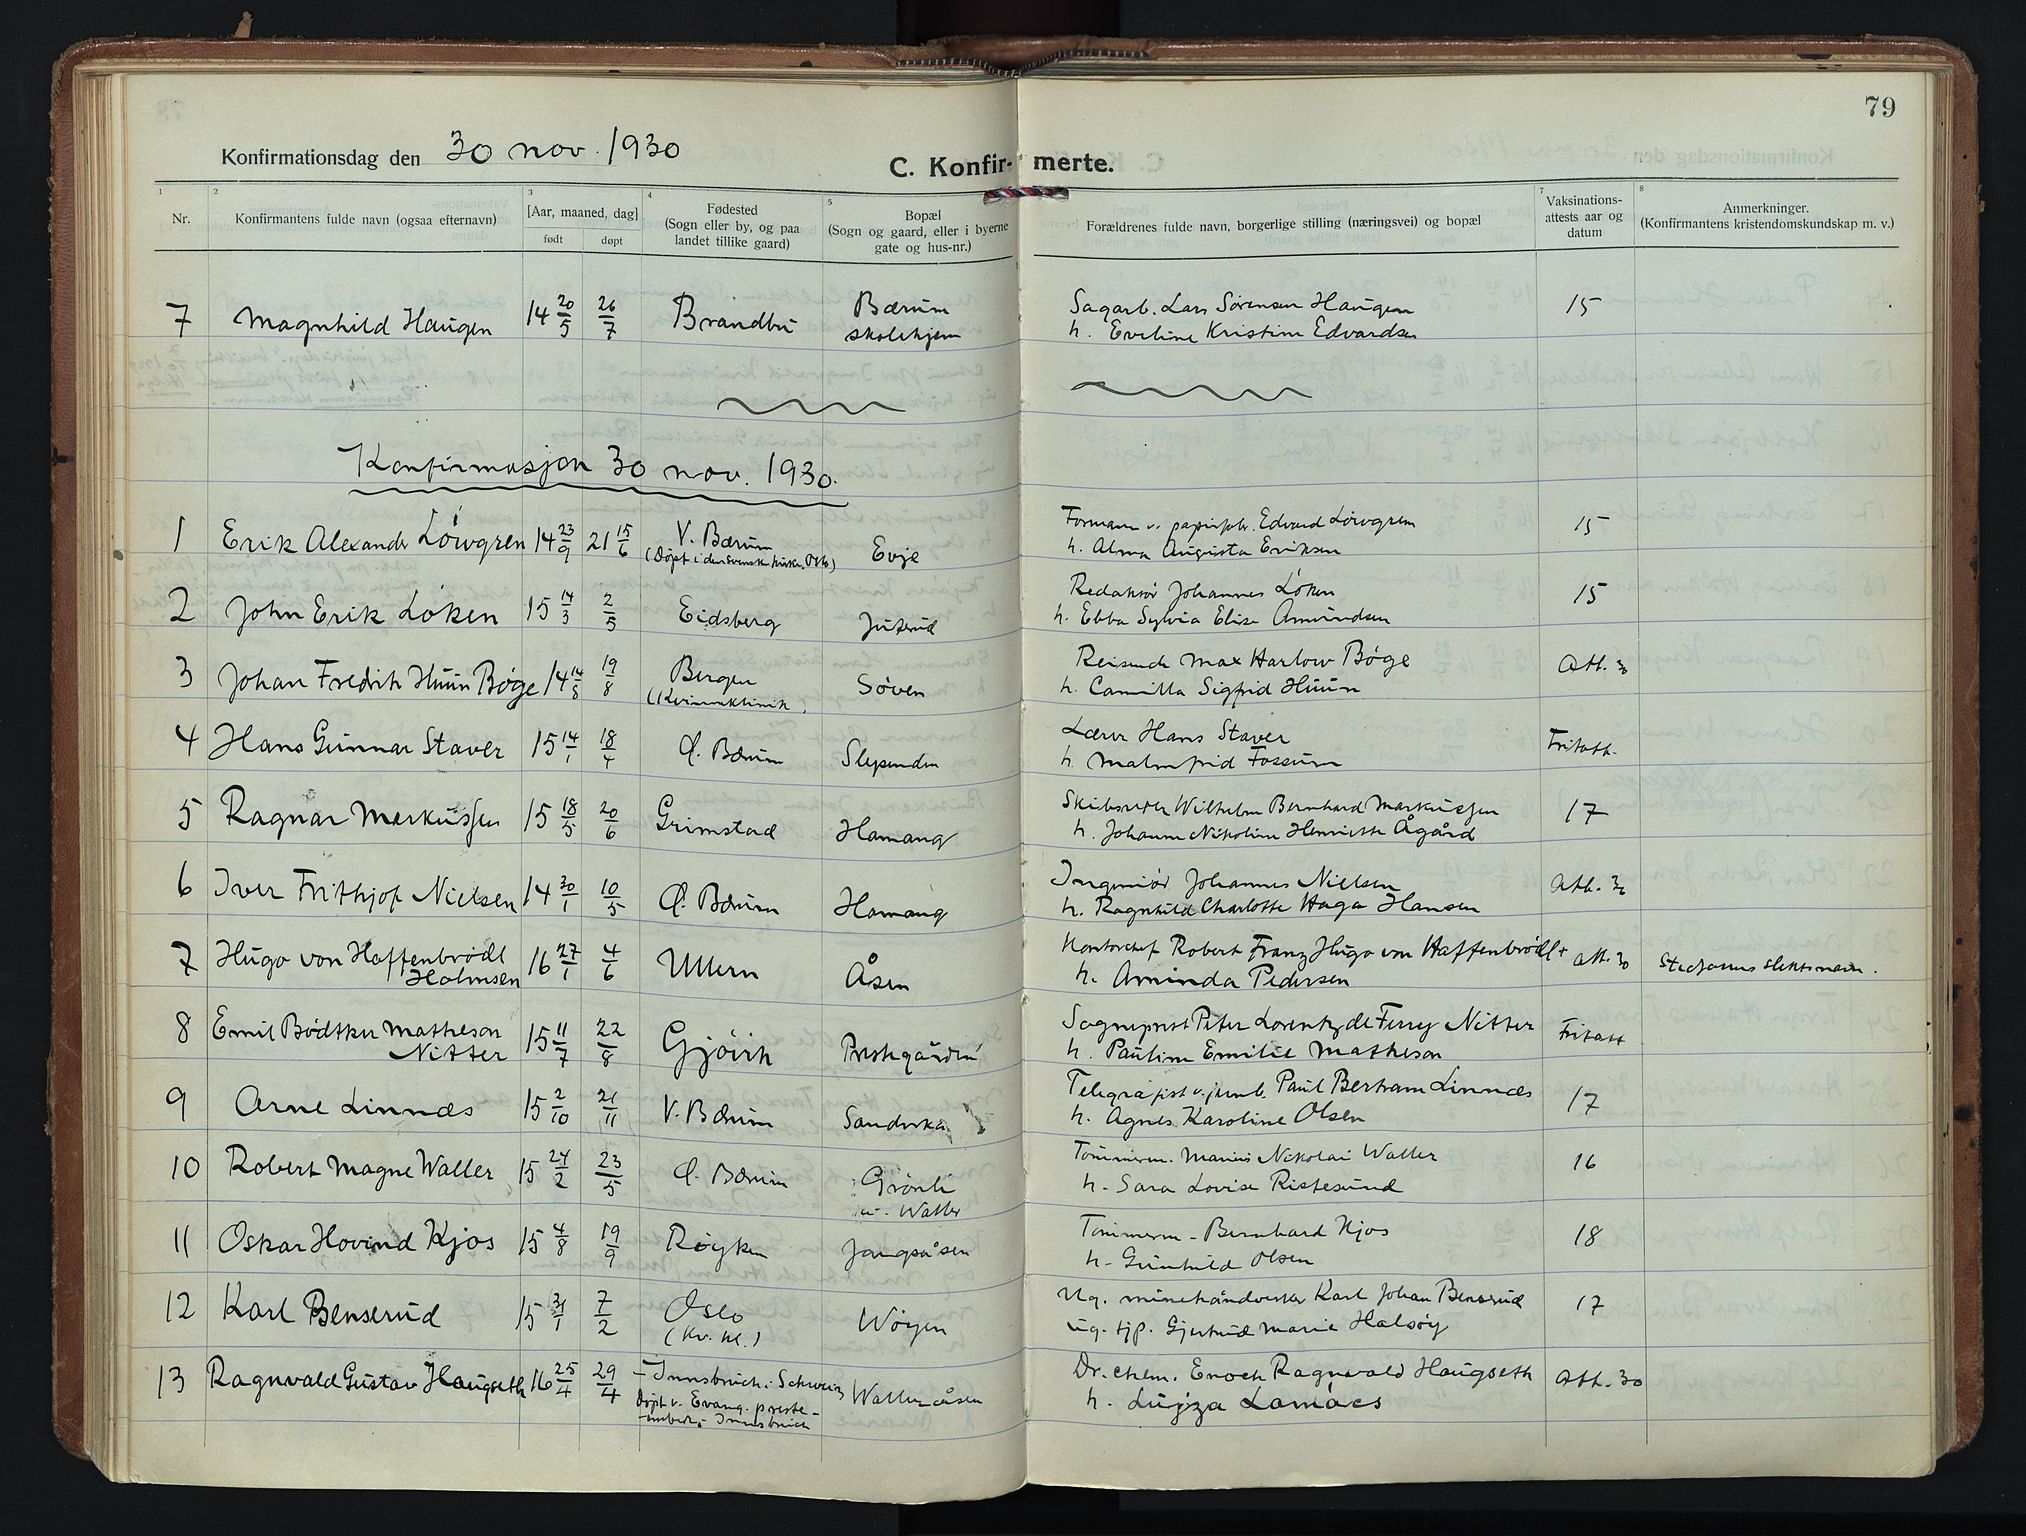 79
Konfirmationsdag den 30 nov. 1930
C. Konfir- merte.
1 2 3 4 5 7 8
Nr.
Konfirmantens fulde navn (ogsaa efternavn)
[Aar, maaned, dag]
født døpt
Fødested
(Sogn eller by, og paa
landet tillike gaard)
Bopæl
(Sogn og gaard, eller i byerne
gate og hus-nr.)
Forældrenes fulde navn, borgerlige stilling (næringsvei) og bopæl
Vaksinations-
attests aar og
datum
Anmerkninger.
(Konfirmantens kristendomskundskap m. v.)
7 Magnhild Haugen 14 20/5 26/7 Brandbu Bærum
skolehjem
Sagarb. Lars Sørensen Haugen 15
h. Eveline Kristine Edvardsen
Konfirmasjon 30 nov. 1930.
1 Erik Alexander Løvgren 14 23/9 21 15/6 V. Bærum
(Døpt i den svenske kirke, Oslo) Evje
Formann v. papirfabr. Edvard Løvgren 15
h. Alma Augusta Eriksen
2 John Erik Løken 15 14/3 2/5 Eidsberg Juterud
Redaktør Johannes Løken 15
h. Ebba Sylvia Elise Amundsen
3 Johan Fredrik Huun Bøge 14 14/8 19/8 Bergen
(Kvinneklinik) Søven
Reisende Max Harlow Bøge Att. 30
h. Camilla Sigfrid Huun
4 Hans Gunnar Staver 15 14/1 18/4 Ø. Bærum Slependen
Lærer Hans Staver Fritatt.
h. Malmfrid Fossum
5 Ragnar Markussen 15 18/5 20/6 Grimstad Hamang
Skibsreder Wilhelm Bernhard Markussen 17
h. Johanne Nikoline Henriette Ågård
6 Iver Frithjof Nielsen 14 30/1 10/5 Ø. Bærum Hamang
Ingeniør Johannes Nielsen Att. 30
h. Ragnhild Charlotte Haga Hansen
7 Hugo von Haffenbrödl
Holmsen 16 27/1 4/6 Ullern Åsen
Kontorchef Robert Franz Hugo von Haffenbrödl + Att. 30 Stedfarens slektsnavn.
h. Aminda Pedersen
8 Emil Bødtker Matheson
Nitter 15 11/7 22/8 Gjøvik Prestegården
Sogneprest Peter Lorentz de Ferry Nitter Fritatt
h. Pauline Emilie Matheson
9 Arne Linnæs 15 2/10 21/11 V. Bærum Sandvika
Telegrafist v. jernb. Paul Bertram Linnæs 17
h. Agnes Karoline Olsen
10 Robert Magne Waller 15 24/2 23/5 Ø. Bærum Grönli
Waller
Tömmerm. Marius Nikolai Waller 16
h. Sara Lovise Ristesund
11 Oskar Hovind Kjos 15 4/8 19/9 Røyken Jongsåsen
Tömmerm. Bernhard Kjos 18
h. Gunhild Olsen
12 Karl Benserud 15 31/1 7/2 Oslo
(Kv. kl.) Wøyen
Ug. minehåndverker Karl Johan Benserud 17
ug. tjp. Gjertrud Marie Halsøy
13 Ragnvald Gustav Haugseth 16 25/4 29/4 Innsbruck i Schweiz
Døpt v. Evang. preste-
embede, Innsbruck Walleråsen
Dr. chem. Enoch Ragnvald Haugseth Att. 30
h. Lujza Lomács